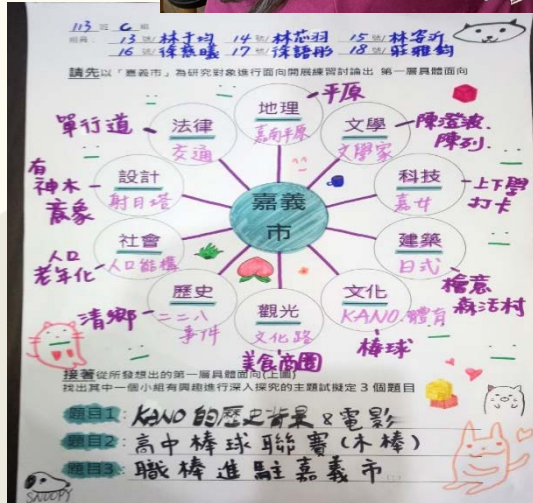 113 班 C 組
組員: 13 號/林子均 14 號/林芯羽 15 號/林客沂
16 號/徐慈曦 17 號/徐語彤 18 號/莊雅鈞
請先以「嘉義市」為研究對象進行面向開展練習討論出 第一層具體面向
嘉義市
地理
嘉南平原
平原
文學
文學家
陳澄波、
陳列.
科技
嘉女
上下學
打卡
建築
日式
檜意
森活村
文化
KANO.體育
棒球
觀光
文化路
美食商圈
歷史
二二八
事件
清鄉
社會
人口結構
人口
老年化
設計
射日塔
有
神木
意象
法律
交通
單行道
接著從所發想出的第一層具體面向(上圖)
找出其中一個小組有興趣進行深入探究的主題試擬定 3 個題目
題目1: KANO 的歷史背景 & 電影
題目2: 高中棒球聯賽(木棒)
題目3: 職棒進駐嘉義市
SNOOPY